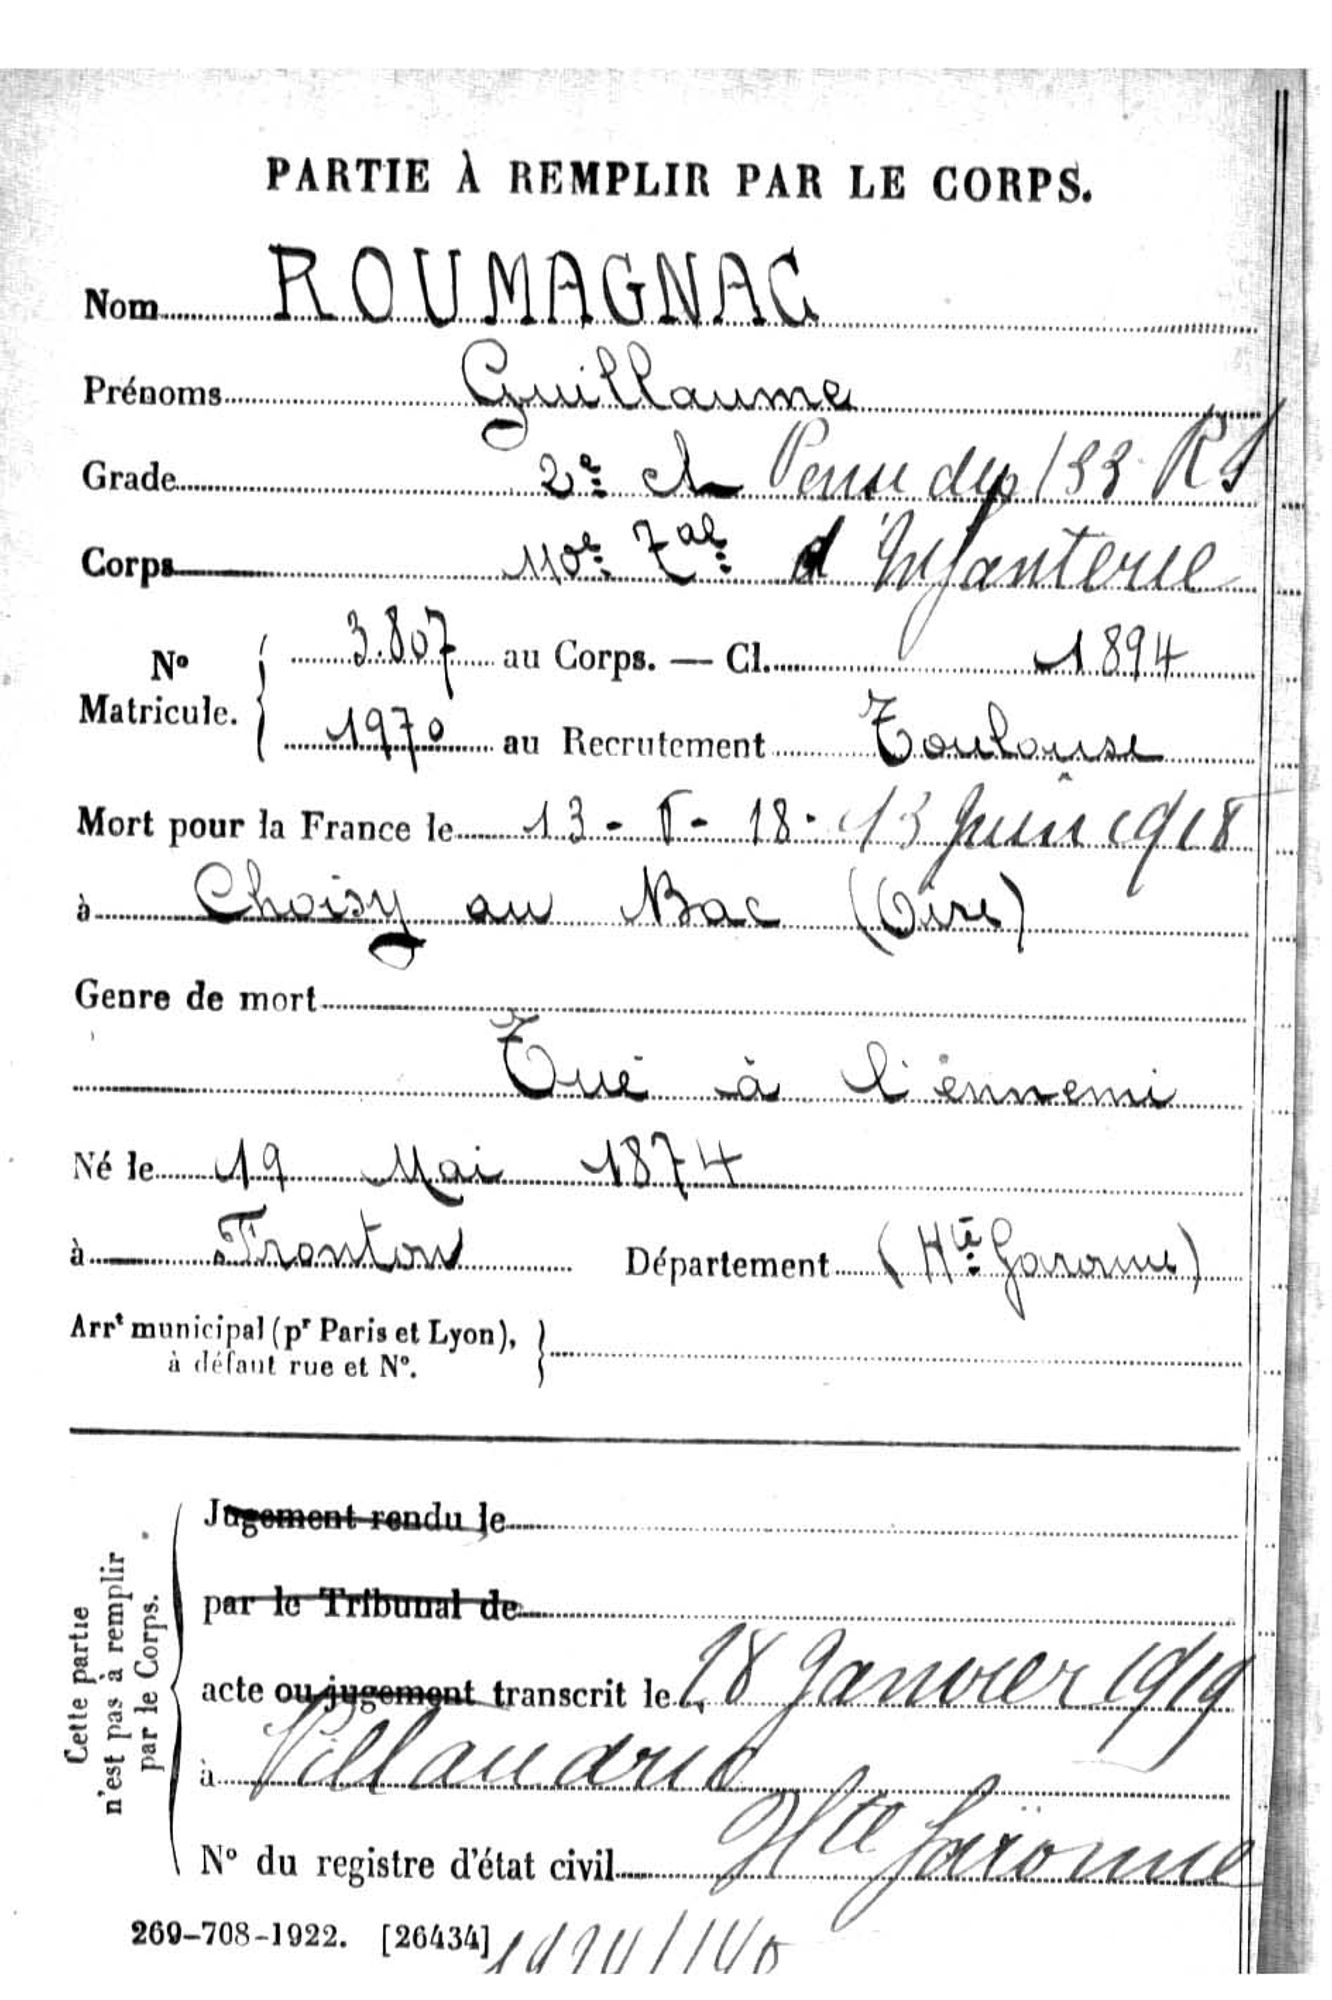 PARTIE À REMPLIR PAR LE CORPS.
Nom ROUMAGNAC
Prénoms Guillaume
Grade 2e cl 133 RI
Corps 110e Tal d'Infanterie
No Matricule. 3.807 au Corps. — Cl. 1894
1970 au Recrutement Toulouse
Mort pour la France le 13 - - 18 - 13 Juin 1918
à Choisy au Bac (Oise)
Genre de mort
Tué à l'ennemi
Né le 19 Mai 1874
à Fronton Département (Hte Garonne)
Arrt municipal (pr Paris et Lyon),
à défaut rue et No.
Cette partie
n'est pas à remplir
par le Corps.
Jugement rendu le
par le Tribunal de
acte ou jugement transcrit le 18 Janvier 1919
à Villaudric
Hte Garonne
No du registre d'état civil
269-708-1922. [26434]